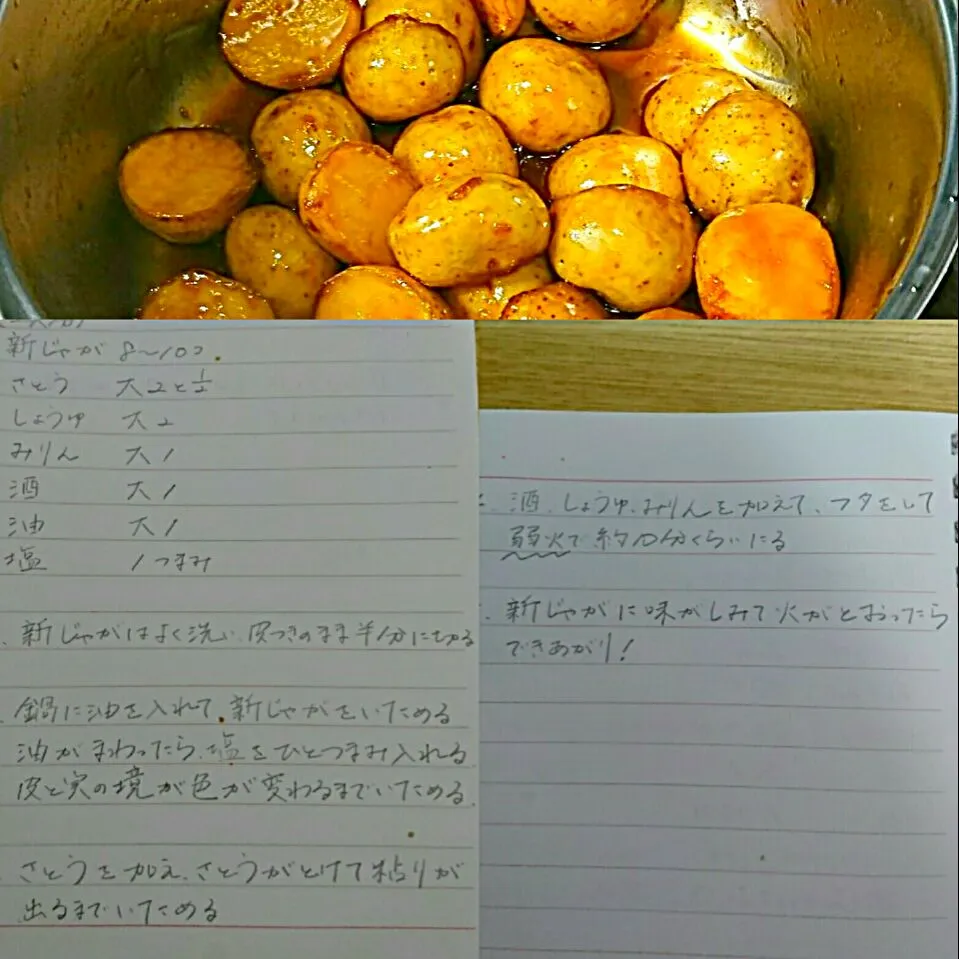 新じゃが 8〜10コ
さとう 大2と1/2
しょうゆ 大2
みりん 大1
酒 大1
油 大1
塩 1つまみ
新じゃがはよく洗い、皮つきのまま半分に切る
鍋に油を入れて、新じゃがをいためる
油がまわったら、塩をひとつまみ入れる
皮と実の境が色が変わるまでいためる
さとうを加え、さとうがとけて粘りが
出るまでいためる
酒、しょうゆ、みりんを加えて、フタをして
弱火で約10分くらいにる
新じゃがに味がしみて火がとおったら
できあがり！